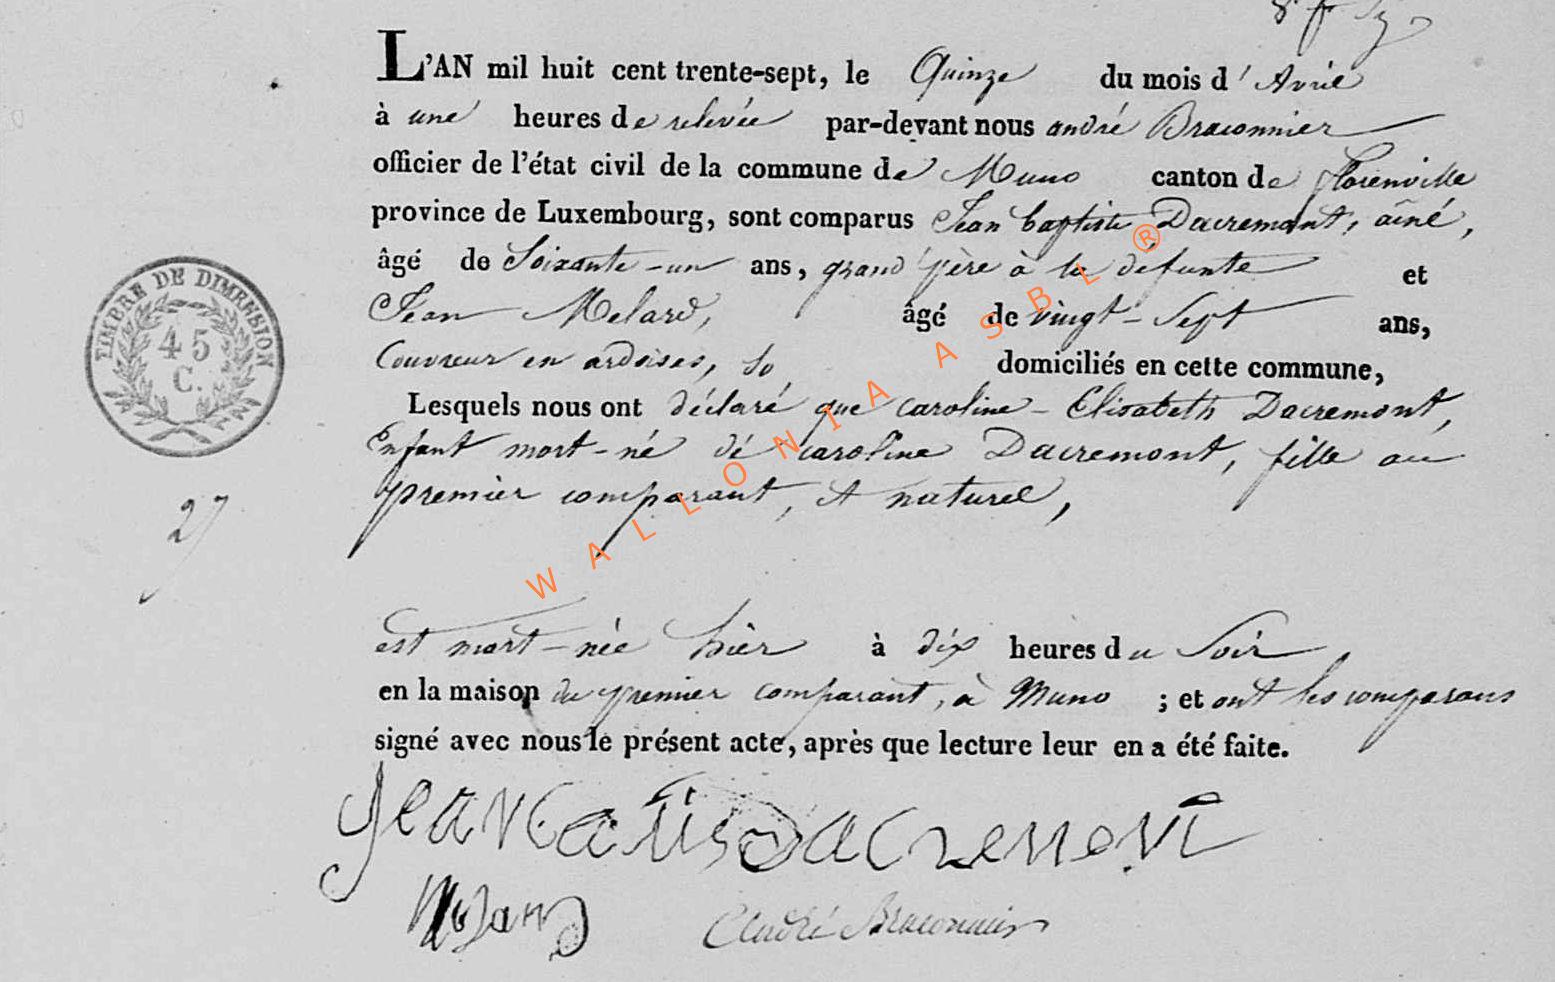 L'AN mil huit cent trente-sept, le Quinze du mois d'Avril
à une heures de relevée par-devant nous andré Braconnier
officier de l'état civil de la commune de Muno canton de florenville
province de Luxembourg, sont comparus Jean baptiste Dacremont, aîné,
âgé de Soixante-un ans, grand père à la defunte et
Jean Melard, âgé de vingt-Sept ans,
Couvreur en ardoises, domiciliés en cette commune,
Lesquels nous ont déclaré que caroline-Elisabeth Dacremont,
Enfant mort-né dé caroline Dacremont, fille au
premier comparant, et naturel,
est mort-née hier à dix heures du Soir,
en la maison du premier comparant, à Muno ; et ont les comparans
signé avec nous le présent acte, après que lecture leur en a été faite.
TIMBRE DE DIMENSION
45
C.
27
Jean Dacremont
André Braconnier
WALLONIA ASBL ®